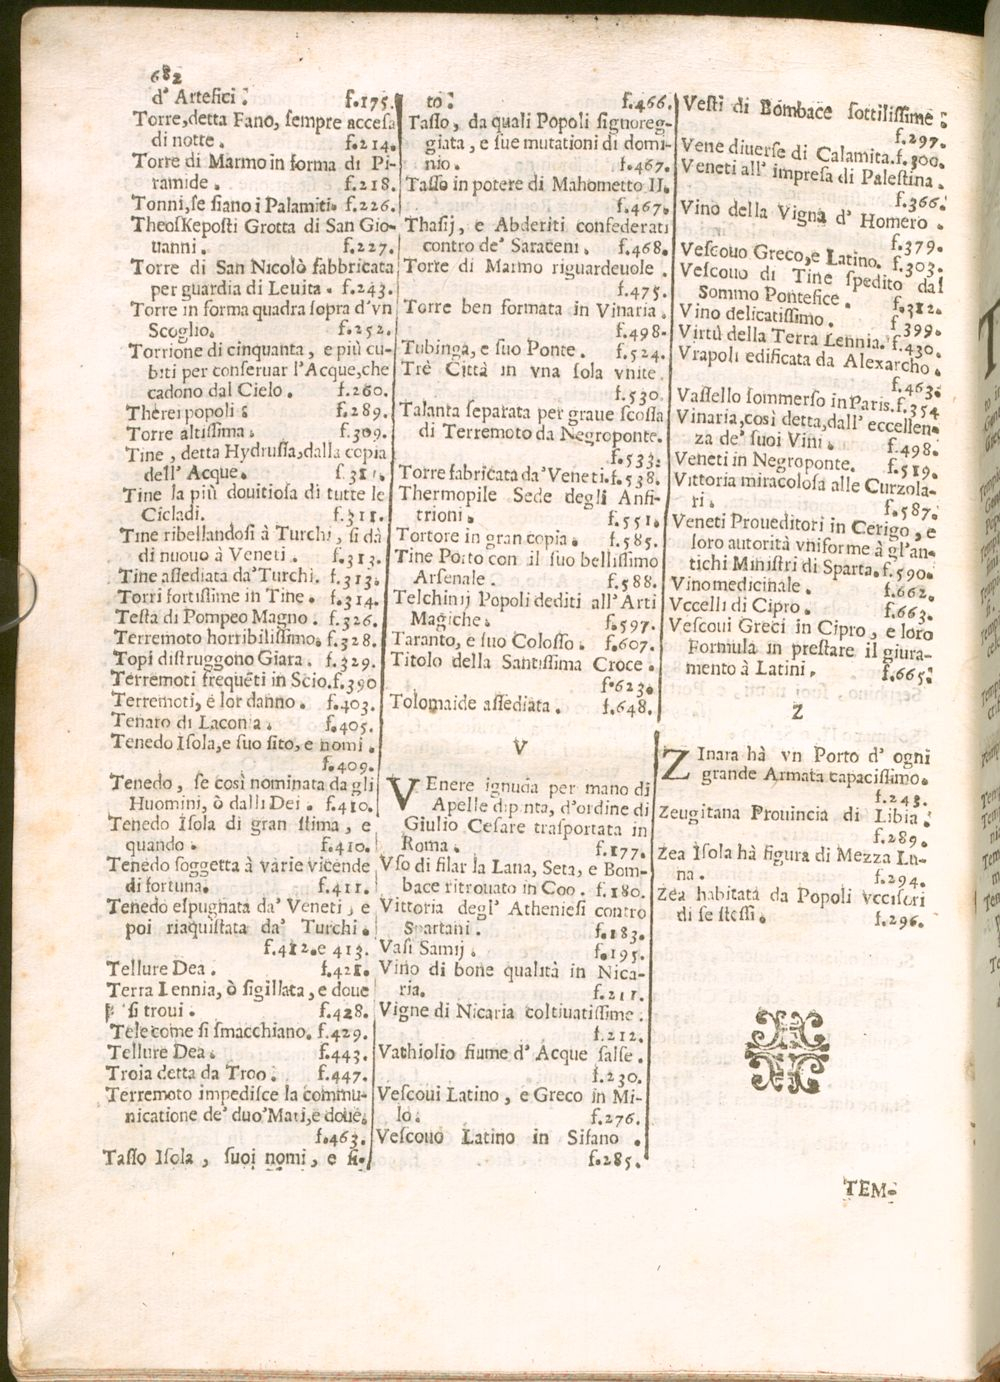 682
d' Artefici. f.175.
Torre, detta Fano, sempre accesa
di notte. f.214.
Torre di Marmo in forma di Pi-
ramide. f.218.
Tonni, se siano i Palamiti. f.226.
Theoskeposti Grotta di San Gio-
uanni. f.227.
Torre di San Nicolò fabbricata
per guardia di Leuita. f.243.
Torre in forma quadra sopra d'vn
Scoglio. f.252.
Torrione di cinquanta, e più cu-
biti per conseruar l'Acque, che
cadono dal Cielo. f.260.
Therei popoli. f.289.
Torre altissima. f.309.
Tine, detta Hydrussa, dalla copia
dell' Acque.
Tine la più douitiosa di tutte le
Cicladi. f.311.
Tine ribellandosi à Turchi, si dà
di nuouo à Veneti. f.313.
Tine assediata da' Turchi. f.313.
Torri fortissime in Tine. f.314.
Testa di Pompeo Magno. f.326.
Terremoto horribilissimo. f.328.
Topi distruggono Giara. f.329.
Terremoti frequẽti in Scio. f.390
Terremoti, e lor danno. f.403.
Tenaro di Laconia. f.405.
Tenedo Isola, e suo sito, e nomi.
f.409.
Tenedo, se così nominata da gli
Huomini, ò dalli Dei. f.410.
Tenedo Isola di gran stima, e
quando. f.410.
Tenedo soggetta à varie vicende
di fortuna. f.411.
Tenedo espugnata da' Veneti, e
poi riaquistata da' Turchi.
f.412. e 413.
Tellure Dea. f.421.
Terra Lennia, ò sigillata, e doue
si troui. f.428.
Tele come si smacchiano. f.429.
Tellure Dea. f.443.
Troia detta da Troo. f.447.
Terremoto impedisce la commu-
nicatione de' duo' Mari, e doue.
f.463.
Tasso Isola, suoi nomi, e si-
to. f.466.
Tasso, da quali Popoli signoreg-
giata, e sue mutationi di domi-
nio. f.467.
Tasso in potere di Mahometto II.
f.467.
Thasij, e Abderiti confederati
contro de' Saraceni. f.468.
Torre di Marmo riguardeuole.
f.475.
Torre ben formata in Vinaria.
f.498.
Tubinga, e suo Ponte. f.524.
Trè Città in vna sola vnite.
f.530.
Talanta separata per graue scossa
di Terremoto da Negroponte.
f.533.
Torre fabricata da' Veneti. f.538.
Thermopile Sede degli Anfi-
trioni. f.551.
Tortore in gran copia. f.585.
Tine Porto con il suo bellissimo
Arsenale. f.588.
Telchinij Popoli dediti all' Arti
Magiche. f.597.
Taranto, e suo Colosso. f.607.
Titolo della Santissima Croce.
f.623.
Tolomaide assediata. f.648.
V
VEnere ignuda per mano di
Apelle dipinta, d'ordine di
Giulio Cesare trasportata in
Roma. f.177.
Vso di filar la Lana, Seta, e Bom-
bace ritrouato in Coo. f.180.
Vittoria degl' Atheniesi contro
Spartani. f.183.
Vasi Samij. f.195.
Vino di bone qualità in Nica-
ria. f.211.
Vigne di Nicaria coltiuatissime.
f.212.
Vathiolio fiume d' Acque salse.
f.230.
Vescoui Latino, e Greco in Mi-
lo. f.276.
Vescouo Latino in Sifano.
f.285.
Vesti di Bombace sottilissime.
f.297.
Vene diuerse di Calamita. f.300.
Veneti all' impresa di Palestina.
f.366.
Vino della Vigna d' Homero.
f.379.
Vescouo Greco, e Latino. f.303.
Vescouo di Tine spedito dal
Sommo Pontefice. f.312.
Vino delicatissimo. f.399.
Virtù della Terra Lennia. f.430.
Vrapoli edificata da Alexarcho.
f.463.
Vassello sommerso in Paris. f.354
Vinaria, così detta, dall' eccellen-
za de' suoi Vini. f.498.
Veneti in Negroponte. f.519.
Vittoria miracolosa alle Curzola-
ri. f.587.
Veneti Proueditori in Cerigo, e
loro autorità vniforme à gl'an-
tichi Ministri di Sparta. f.590.
Vino medicinale. f.662.
Vccelli di Cipro. f.663.
Vescoui Greci in Cipro, e loro
Formula in prestare il giura-
mento à Latini. f.665.
Z
ZInara hà vn Porto d' ogni
grande Armata capacissimo.
f.243.
Zeugitana Prouincia di Libia.
f.289.
Zea Isola hà figura di Mezza Lu-
na. f.294.
Zea habitata da Popoli vccisori
di se stessi. f.296.
TEM-